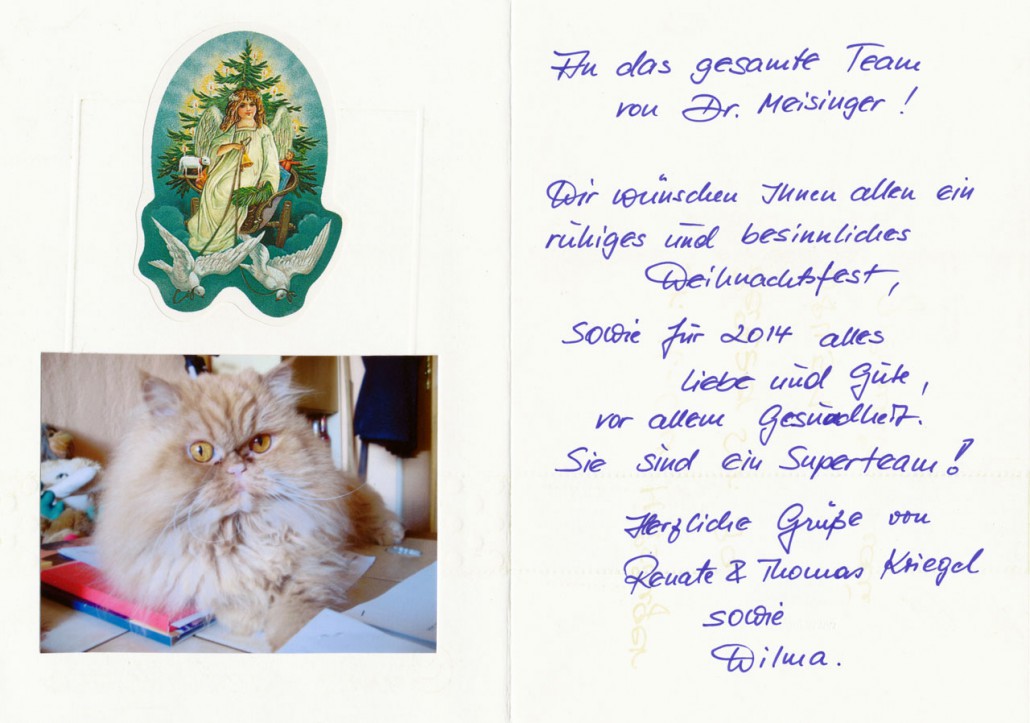 An das gesamte Team
von Dr. Meisinger!
Wir wünschen Ihnen allen ein
ruhiges und besinnliches
Weihnachtsfest,
sowie für 2014 alles
Liebe und Gute,
vor allem Gesundheit.
Sie sind ein Superteam!
Herzliche Grüße von
Renate & Thomas Kriegel
sowie
Wilma.